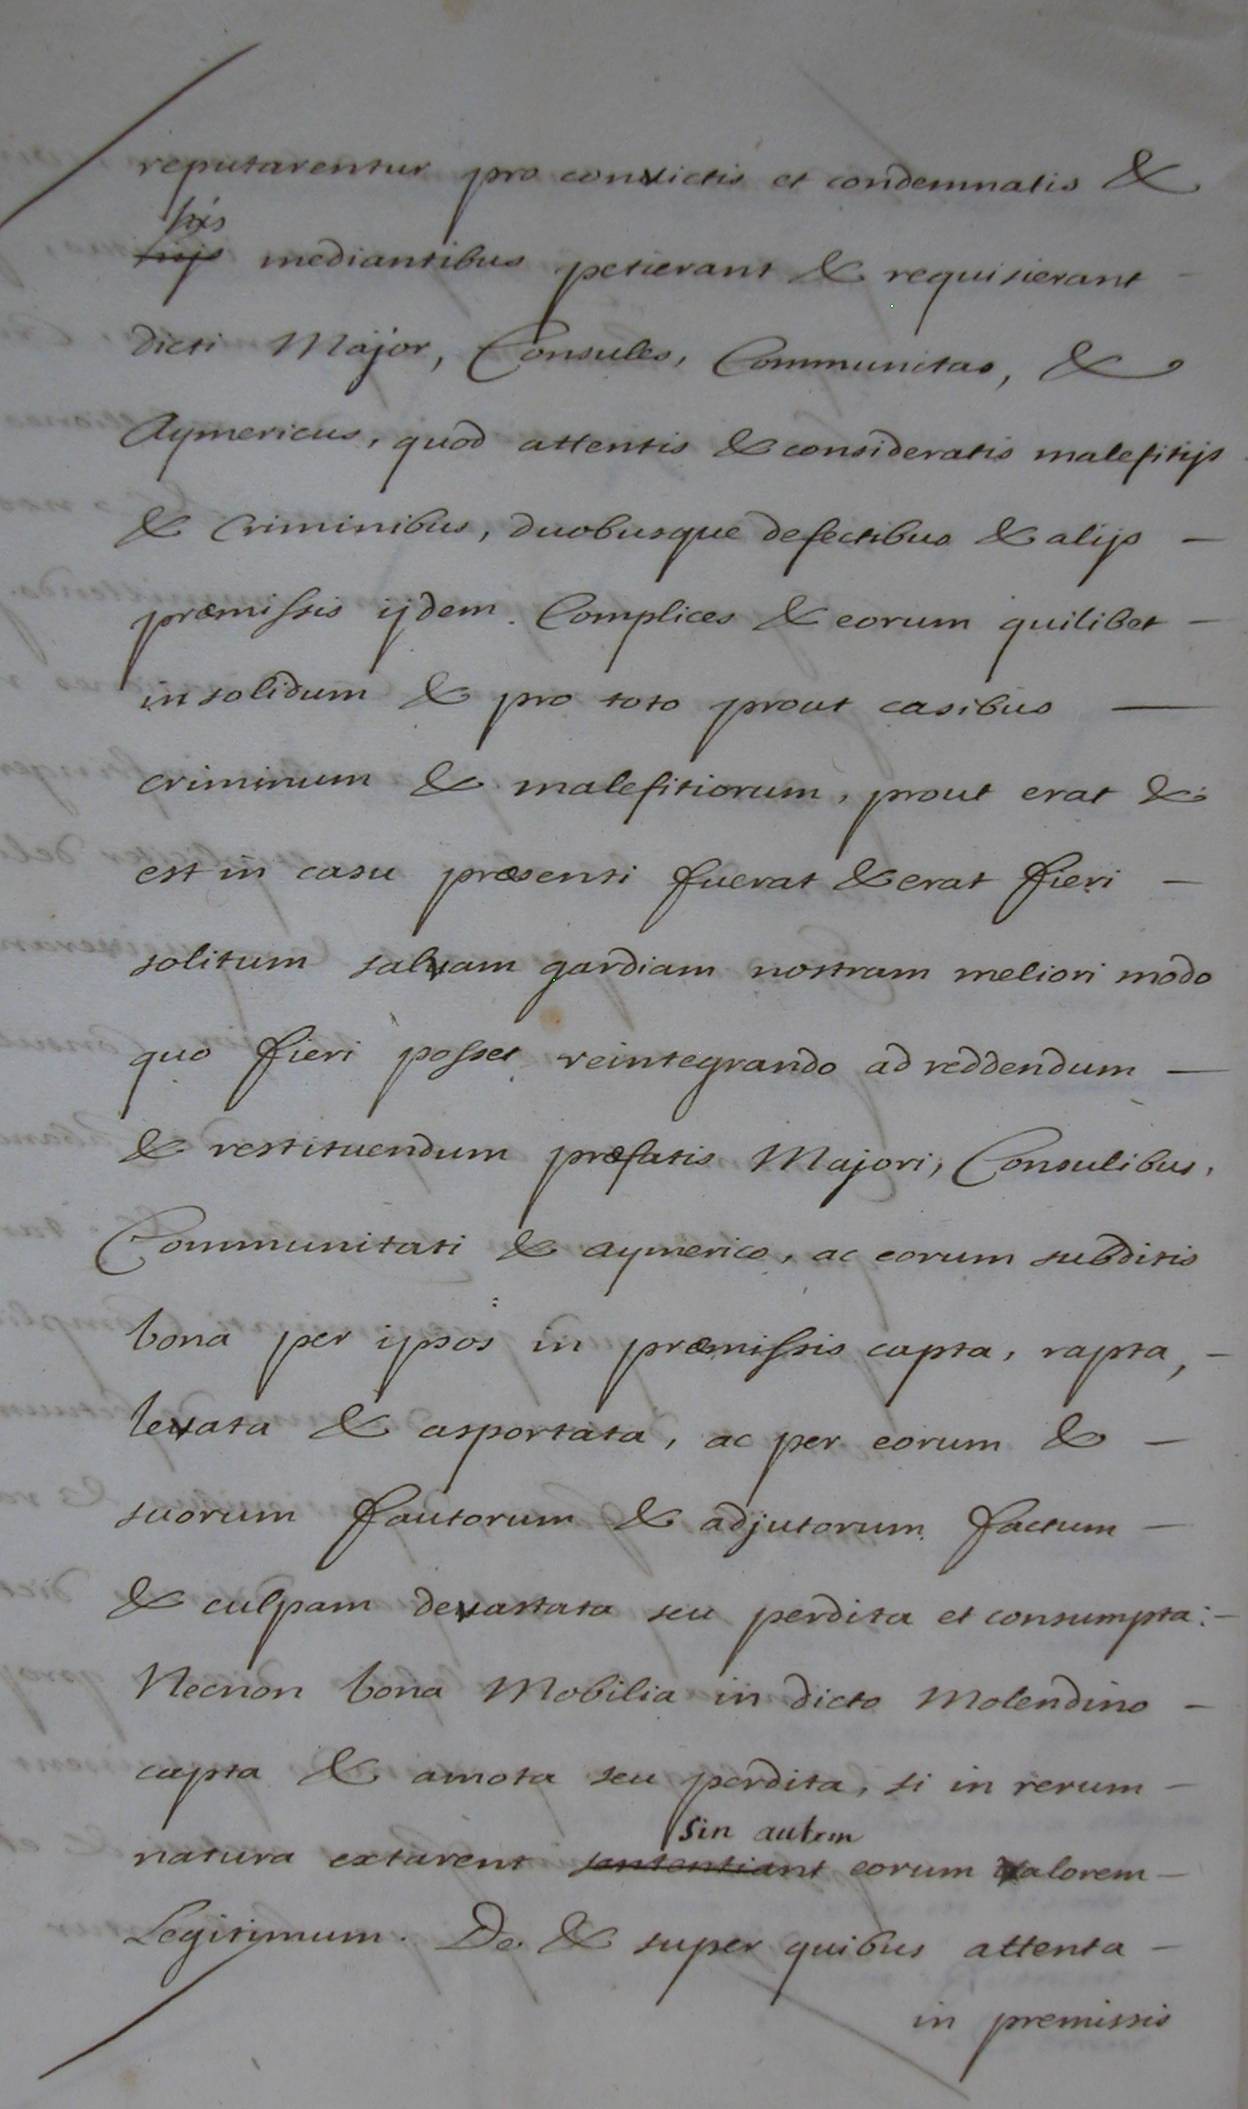 reputarentur pro convictis et condemnatis &
his
hijs mediantibus petierant & requisierant -
dicti Major, Consules, Communitas, &
Aymericus, quod attentis & consideratis malefitijs
& criminibus, duobusque defectibus & alijs -
præmissis ijdem Complices & eorum quilibet -
in solidum & pro toto prout casibus —
criminum & malefitiorum, prout erat &
est in casu præsenti fuerat & erat fieri -
solitum salvam gardiam nostram meliori modo
quo fieri posset reintegrando ad reddendum —
& restituendum præfatis Majori, Consulibus,
Communitati & aymerico, ac eorum subditis
bona per ipsos in præmissis capta, rapta, -
levata & asportata, ac per eorum & -
suorum fautorum & adjutorum factum -
& culpam devastata seu perdita et consumpta: -
Necnon bona Mobilia in dicto Molendino -
capta & amota seu perdita, si in rerum -
sin autem
natura extarent sententiant eorum valorem -
Legitimum. De & super quibus attenta -
in premissis